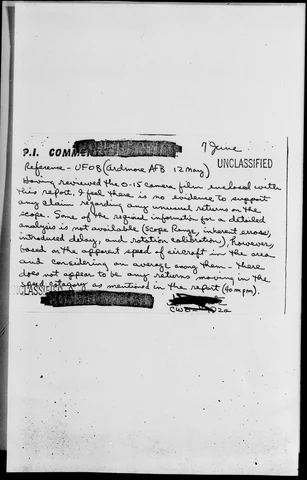 7 June
P.I. COMMEN
UNCLASSIFIED
Reference - UFOB (Ardmore AFB 12 May)
Having reviewed the O-15 camera film enclosed with
this report, I feel there is no evidence to support
any claim regarding any unusual returns on the
scope. Some of the required information for a detailed
analysis is not available (scope range, inherent errors,
introduced delay, and rotation calibration), however,
based on the apparent speed of aircraft in the area
and considering an average among them - there
does not appear to be any returns moving in the
speed category as mentioned in the report (40 mpm).